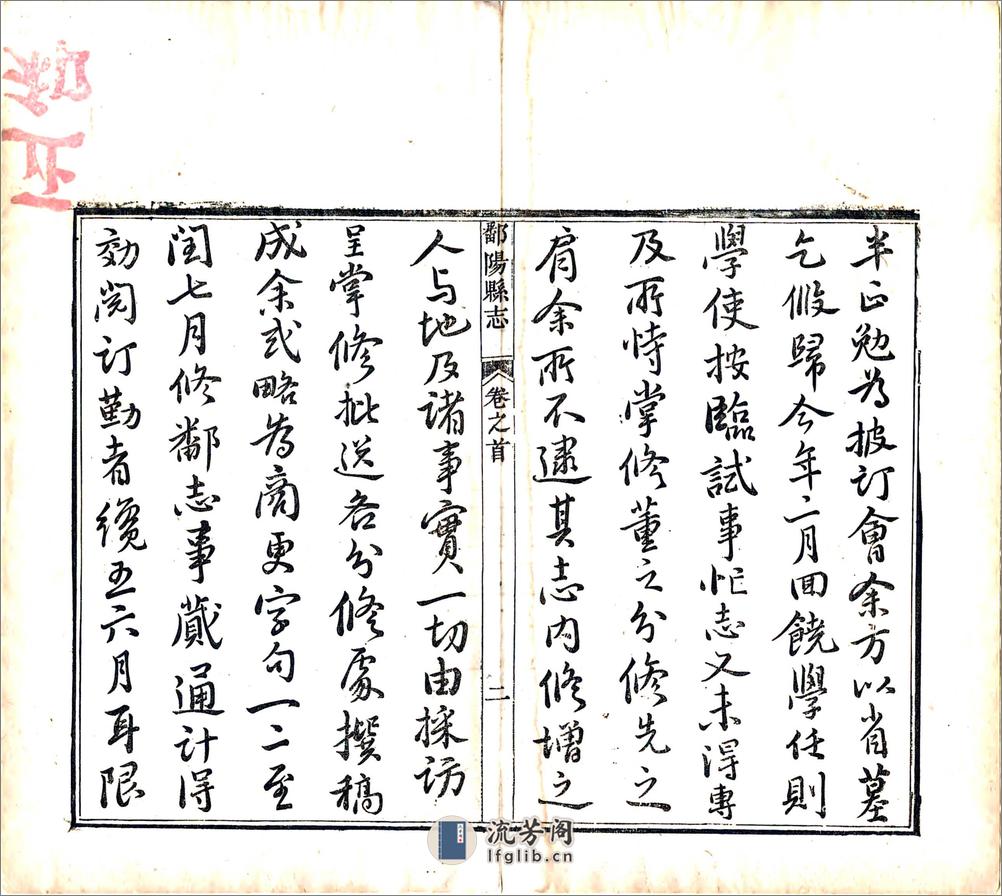 半正勉为披订會余方以省墓
乞假歸今年二月回饒學任則
學使按臨試事忙志又未得專
及所恃掌修董之分修先之
肩余所不逮其志内修增之
鄱陽縣志 卷之首 二
人与地及諸事實一切由採访
呈掌修批送各分修處撰稿
成余或略为商更字句一二至
閏七月修鄱志事蕆通计得
効阅订勤者纔五六月耳限
流芳阁
lfglib.cn